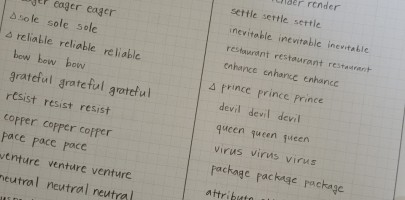 eager eager
Δ sole sole sole
Δ reliable reliable reliable
bow bow bow
grateful grateful grateful
resist resist resist
copper copper copper
pace pace pace
venture venture venture
neutral neutral neutral
render
settle settle settle
inevitable inevitable inevitable
restaurant restaurant restaurant
enhance enhance enhance
Δ prince prince prince
devil devil devil
queen queen queen
virus virus virus
package package package
attribute